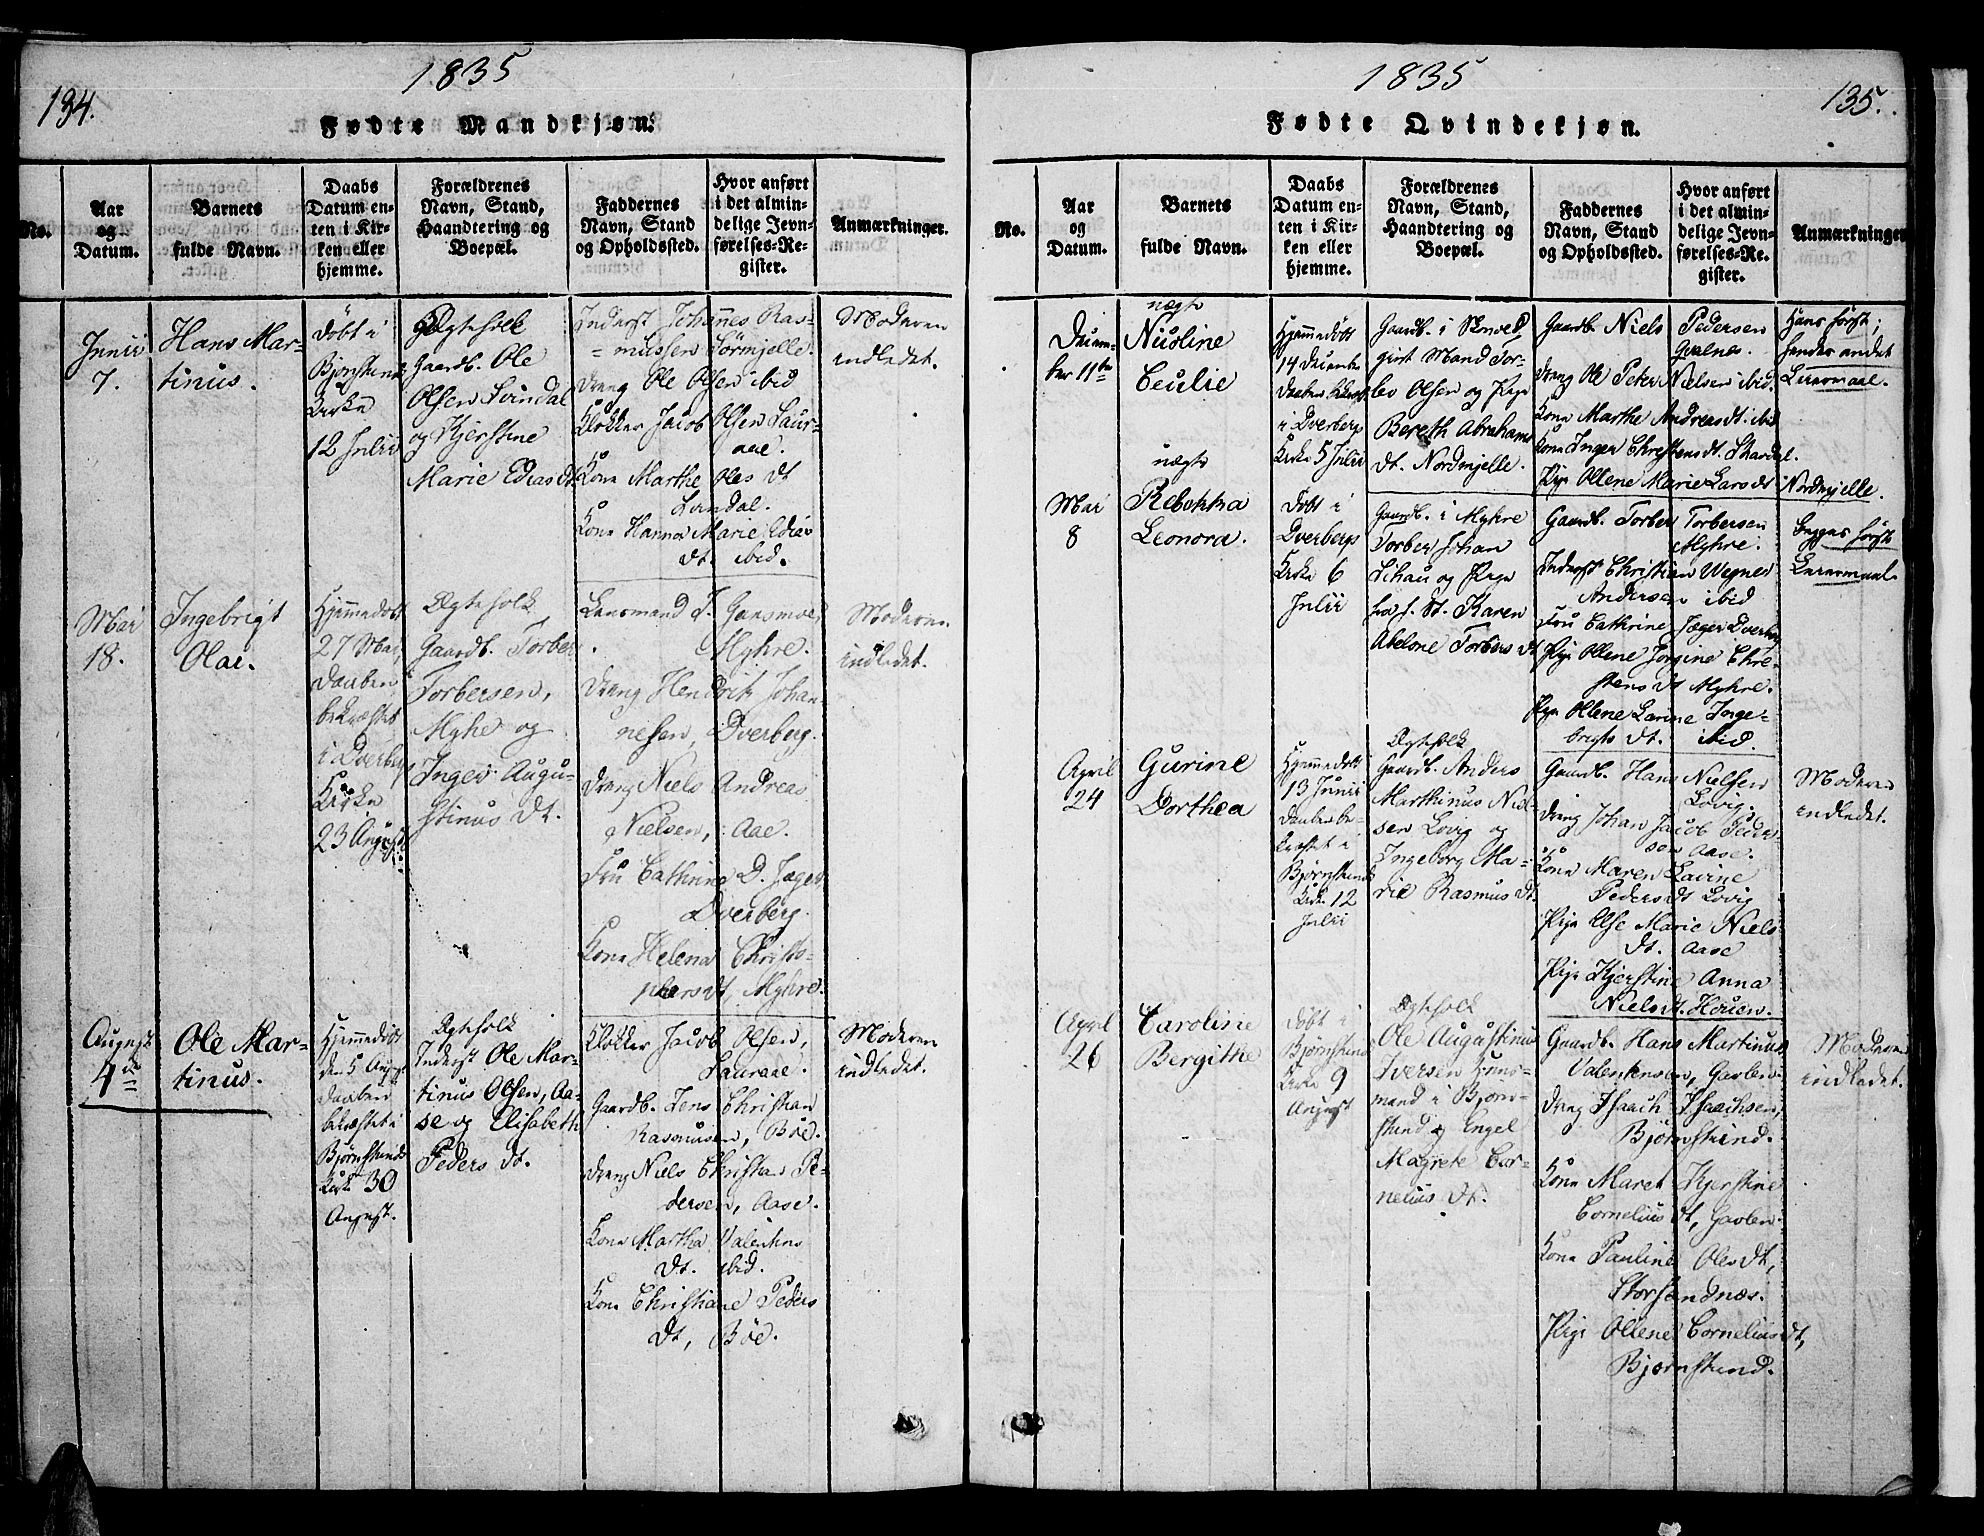 134.
1835
Fødte Mandkjøn.
No.
Aar
og
Datum.
Barnets
fulde Navn.
Daabs
Datum en-
ten i Kir-
ken eller
hjemme.
Forældrenes
Navn, Stand,
Haandtering og
Boepæl.
Faddernes
Navn, Stand
og Opholdssted.
Hvor anført
i det almin-
delige Jevn-
førelses-Re-
gister.
Anmærkninger.
Junii
7.
Hans Mar-
tinus.
Døbt i
Bjørnskind
Kirke
12 Julii
Ægtefolk
Gaardb. Ole
Olsen
og Kjerstine
Marie
Inderst Johannes Ras-
mussen Sørmjelle.
Dreng Ole Olsen ibid
Klokker Jacob Olsen Saur-
aae.
Kone Marthe Ols dt
Kone Hanna Marie
dt. ibid.
Moderen
indledet.
Mai
18.
Ingebrigt
Olai.
Hjemmedøbt
27 Mai,
Daaben
bekræftet
i Dverberg
Kirke
23 August
Ægtefolk
Gaardb. Torber
Torbersen,
Myhre og
Inger Augu-
stinus dt.
Lensmand
Myhre.
Dreng Hendrik Johan
nesen, Dverberg.
Dreng Niels Andreas
Nielsen, Aae.
Fru Cathrine D. Jæger
Dverberg.
Kone Helena Christo-
phersdt, Myhre.
Moderen
indledet.
August
4de
Ole Mar-
tinus.
Hjemmedøbt
den 5 Aug
Daaben
bekræftet i
Bjørnskinds
Kirke 30
August.
Ægtefolk
Inderst Ole Mar-
tinus Olsen, Aa-
se og Elisabeth
Peders dt.
Klokker Jacob Olsen,
Sauraae.
Gaardb. Jens Christian
Rasmusen, Böe.
Dreng Niels Christian Pe-
dersen, Aase.
Kone Martha Valentins
dt. ibid.
Kone Christiane Peders
dt, Böe.
Moderen
indledet.
1835
135.
Fødte Qvindekjøn.
No.
Aar
og
Datum.
Barnets
fulde Navn.
Daabs
Datum en-
ten i Kir-
ken eller
hjemme.
Forældrenes
Navn, Stand,
Haandtering og
Boepæl.
Faddernes
Navn, Stand
og Opholdssted.
Hvor anført
i det almin-
delige Jevn-
førelses-Re-
gister.
Anmærkninger
Decem-
ber 11te
uægte
Nicoline
Cecilie
Hjemmedøbt
14 December
Daaben
i Dverbergs
Kirke 5 Julii
Gaardb. i
gift Mand Tor-
ber Olsen og Pige
Bereth Abrahams
dt. Nordmjelle.
Gaardb. Niels Pedersen
Dreng Ole Peter Nielsen ibid.
Kone Marthe Andreasdt. ibid
Kone Inger Christensdt. Skardal.
Pige Ollene Marie Larsdt Nordmjelle.
Hans første;
hendes andet
Leiermaal.
Mai
8
uægte
Rebekka
Leonora.
Døbt i
Dverbergs
Kirke 6
Julii
Gaardb. i Myhre
Torber Johan
Schau og Pige
Karen
Abelone Torbersdt
Gaardb. Torber Torbersen
Myhre.
Inderst Christian Wegner
Andersen ibid
Fru Cathrine Jæger Dverberg
Pige Ollene Jorgine Chri-
stens dt Myhre.
Pige Ollene Larine Inge-
brigts dt. ibid.
Begges første
Leiermaal
April
24
Gurine
Dorthea
Hjemmedøbt
13 Junii
Daaben be-
kræftet i
Bjørnskinds
Kirke 12
Julii
Ægtefolk
Gaardb. Anders
Marthinus Niel-
sen Lovig og
Ingeborg Ma-
rie Rasmus dt.
Gaardb. Hans Nielsen
Lovig.
Dreng Johan Jacob Peder-
sen Aase.
Kone Maren Lavine
Pedersdt Lovig
Pige Else Marie Niels
dt. Aase
Pige Kjerstine Anna
Nielsdt.
Moderen
indledet.
April
26
Caroline
Bergithe
Døbt i
Bjørnskind
Kirke 9
August
Ægtefolk
Ole Augustinus
Iversen Huus-
mand i Bjørn-
skind og Engel
Magrete Cor-
nelius dt.
Gaardb. Hans Martinus
Valentinsen, Gavlen.
Dreng Isaach Isaachsen,
Bjørnskind.
Kone Maret Kjerstine
Corneliusdt, Gavlen.
Kone Pauline Olesdt,
Storsandnæs.
Pige Ollene Corneliusdt,
Bjørnskind.
Moderen
indledet.